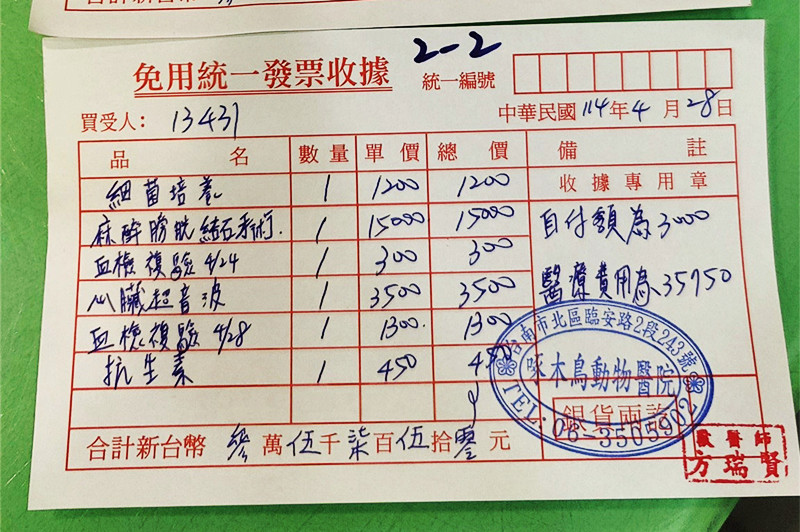 合計新台幣
2-2
免用統一發票收據
統一編號
買受人: 13431
中華民國 114 年 4 月 28 日
品 名 數量 單價 總價 備 註
收據專用章
細菌培養 1 1200 1200
麻醉膀胱結石手術. 1 15000 15000
血檢複驗 4/24 1 300 300
心臟超音波 1 3500 3500
血檢複驗 4/28 1 1300. 1300
抗生素 1 450 450
自付額為3000
醫療費用為35750
台南市北區臨安路2段243號
啄木鳥動物醫院
TEL:06-3505902
銀貨兩訖
合計新台幣 參 萬 伍 千 柒 百 伍 拾 零 元
獸醫師
方瑞賢